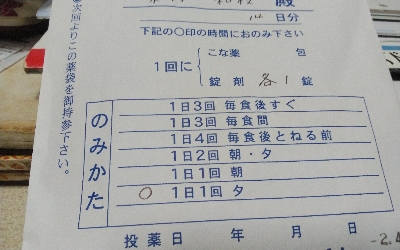 殿
14日分
下記の〇印の時間におのみ下さい
1回に
こな薬 包
錠剤 各1錠
のみかた
1日3回 毎食後すぐ
1日3回 毎食間
1日4回 毎食後とねる前
1日2回 朝・夕
1日1回 朝
〇 1日1回 夕
投薬日 年 月 日
●次回よりこの薬袋を御持参下さい。